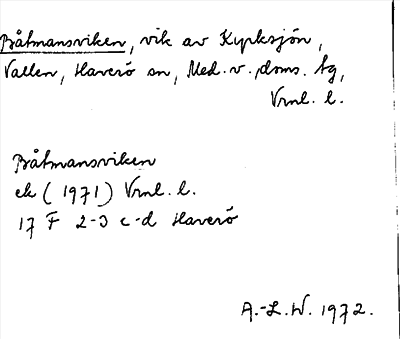 Båtmansviken, vik av Kyrksjön,
Vallen, Haverö sn, Med. v. doms. tg,
Vrnl. l.
Båtmansviken
ek (1971) Vrnl. l.
17 F 2-3 c-d Haverö
A.-L.W. 1972.